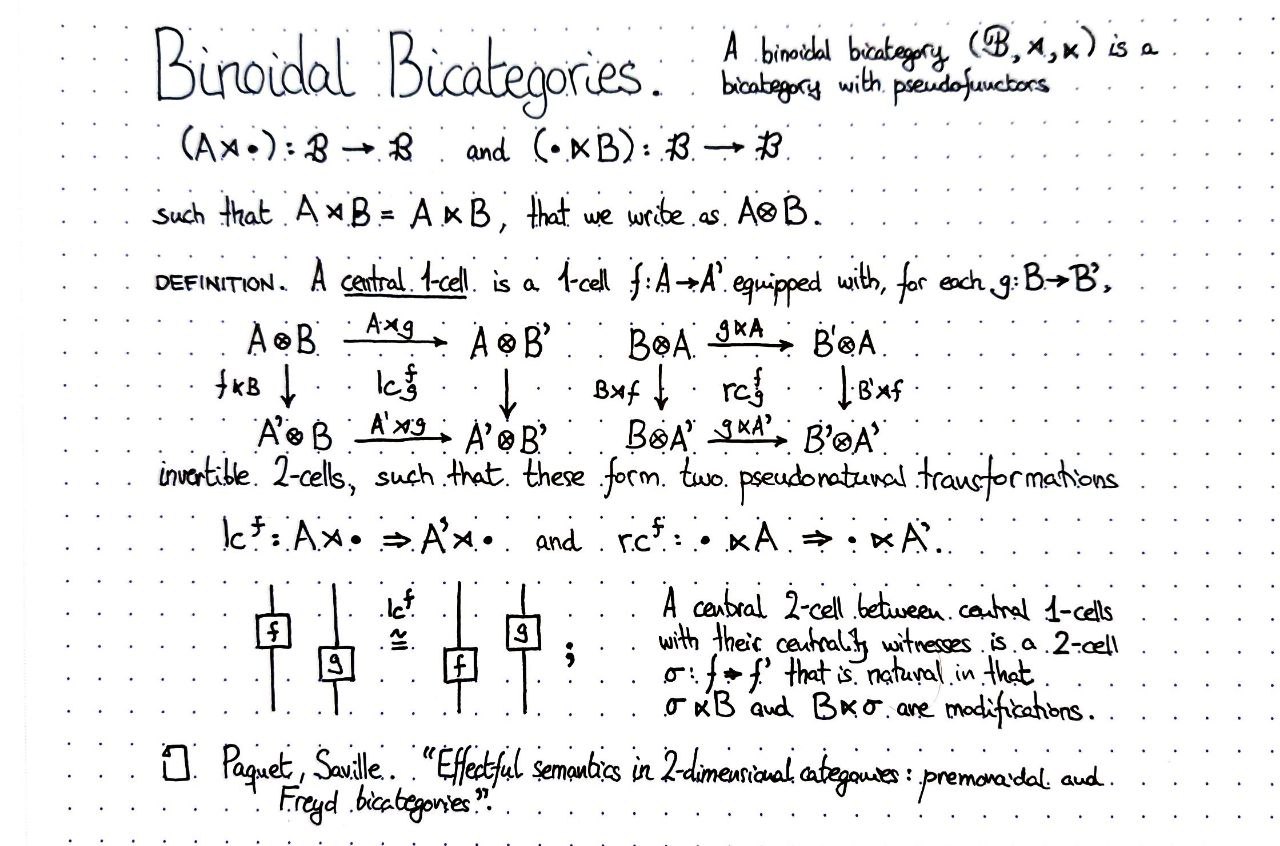 Binoidal Bicategories.
A binoidal bicategory (𝓑, ⋊, ⋉) is a
bicategory with pseudofunctors
(A⋊•) : 𝓑 → 𝓑 and (•⋉B) : 𝓑 → 𝓑
such that A⋊B = A⋉B, that we write as A⊗B.
DEFINITION. A central 1-cell is a 1-cell f:A→A' equipped with, for each g:B→B',
A⊗B A⋊g A⊗B' B⊗A g⋉A B'⊗A
f⋉B lc^f_g B⋊f rc^f_g B'⋊f
A'⊗B A'⋊g A'⊗B' B⊗A' g⋉A' B'⊗A'
invertible 2-cells, such that these form two pseudonatural transformations
lc^f : A⋊• ⇒ A'⋊• and rc^f : •⋉A ⇒ •⋉A'.
f g lc^f ≅ f g ;
A central 2-cell between central 1-cells
with their centrality witnesses is a 2-cell
σ: f → f' that is natural in that
σ⋉B and B⋊σ are modifications.
Paquet, Saville. "Effectful semantics in 2-dimensional categories: premonoidal and
Freyd bicategories".